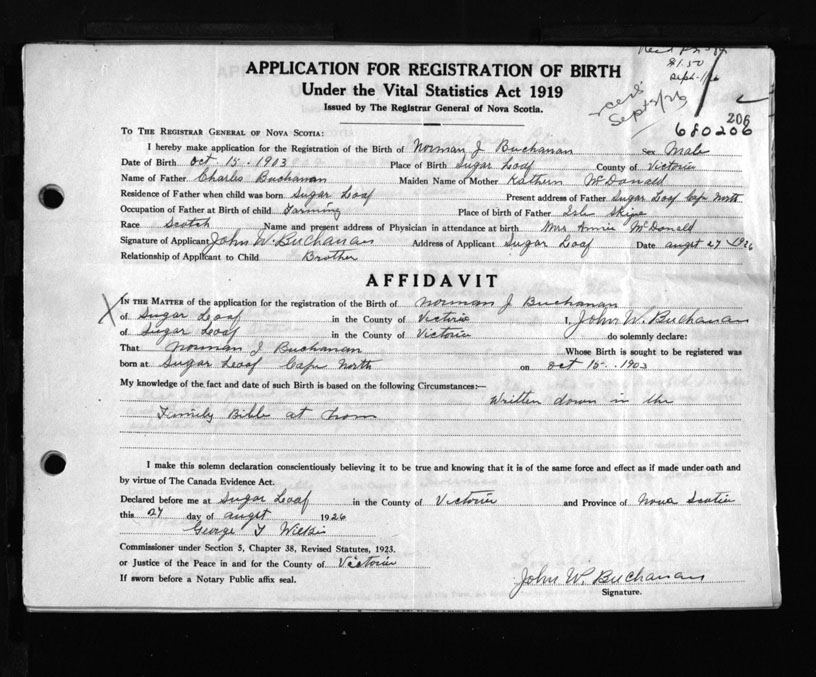 $1.50
Sept-1/26
recd.
Sept 2/26
APPLICATION FOR REGISTRATION OF BIRTH
Under the Vital Statistics Act 1919
Issued by The Registrar General of Nova Scotia.
206
680206
TO THE REGISTRAR GENERAL OF NOVA SCOTIA:
I hereby make application for the Registration of the Birth of Norman J Buchanan Sex Male
Date of Birth Oct 15. 1903 Place of Birth Sugar Loaf County of Victoria
Name of Father Charles Buchanan Maiden Name of Mother Kathern McDonald
Residence of Father when child was born Sugar Loaf Present address of Father Sugar Loaf Cape North
Occupation of Father at Birth of child Farming Place of birth of Father Isle Skipe
Race Scotch Name and present address of Physician in attendance at birth Mrs Annie McDonald
Signature of Applicant John W. Buchanan Address of Applicant Sugar Loaf Date augst 27 1926
Relationship of Applicant to Child Brother
AFFIDAVIT
X IN THE MATTER of the application for the registration of the Birth of Norman J Buchanan
of Sugar Loaf in the County of Victoria I, John W. Buchanan
of Sugar Loaf in the County of Victoria do solemnly declare:
That Norman J Buchanan Whose Birth is sought to be registered was
born at Sugar Loaf Cape North on Oct 15. 1903
My knowledge of the fact and date of such Birth is based on the following Circumstances:—
Written down in the
Family Bible at hom
I make this solemn declaration conscientiously believing it to be true and knowing that it is of the same force and effect as if made under oath and
by virtue of The Canada Evidence Act.
Declared before me at Sugar Loaf in the County of Victoria and Province of Nova Scotia
this 27 day of augst 1926
George T Wilkie
Commissioner under Section 5, Chapter 38, Revised Statutes, 1923.
or Justice of the Peace in and for the County of Victoria
If sworn before a Notary Public affix seal.
John W. Buchanan
Signature.